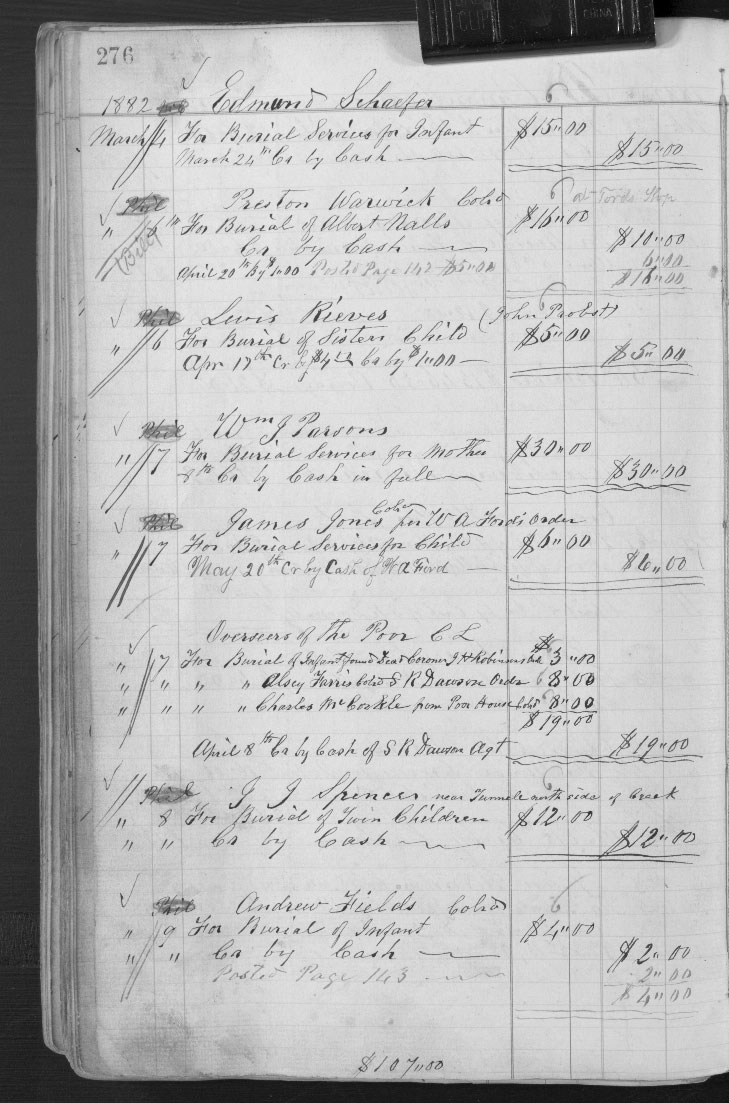 CHINA
276
1882 Edmund Schaefer 6
March 4 For Burial Services for Infant $15"00
March 24th Cr by Cash $15"00
Phil Preston Warwick Cold 6 at Fords Shop
" 6th For Burial of Albert Nalls $16"00
(Bill) Cr by Cash $10"00
6"00
April 20th By $1"00 Posted Page 142 $5"00 $16"00
Phil Lewis Rieves (John Probst) 6
" 6 For Burial of Sisters Child $5"00
Apr 17th Cr of $4"00 Cr by $1"00 $5"00
Phil Wm J Parsons
" 7 For Burial Services for Mother $30"00
8th Cr by Cash in full $30"00
Phil James Jones Cold per W A Ford's Order
" 7 For Burial Services for Child $6"00
May 20th Cr by Cash of W A Ford $6"00
Overseers of the Poor C L
" 7 For Burial of Infant found Dead Coroner J H Robinsons $3"00
" " " " Alsey Farris Cold S R Dawson Order 8"00
" " " " Charles McCorkle from Poor House Cold 8"00
$19"00
April 8th Cr by Cash of S R Dawson Agt $19"00
Phil J J Spencer near Tunnele north side of Creek 6
" 8 For Burial of Twin Children $12"00
" " Cr by Cash $12"00
Phil Andrew Fields Cold 6
" 9 For Burial of Infant $4"00
" " Cr by Cash $2"00
Posted Page 143 2"00
$4"00
$107"00